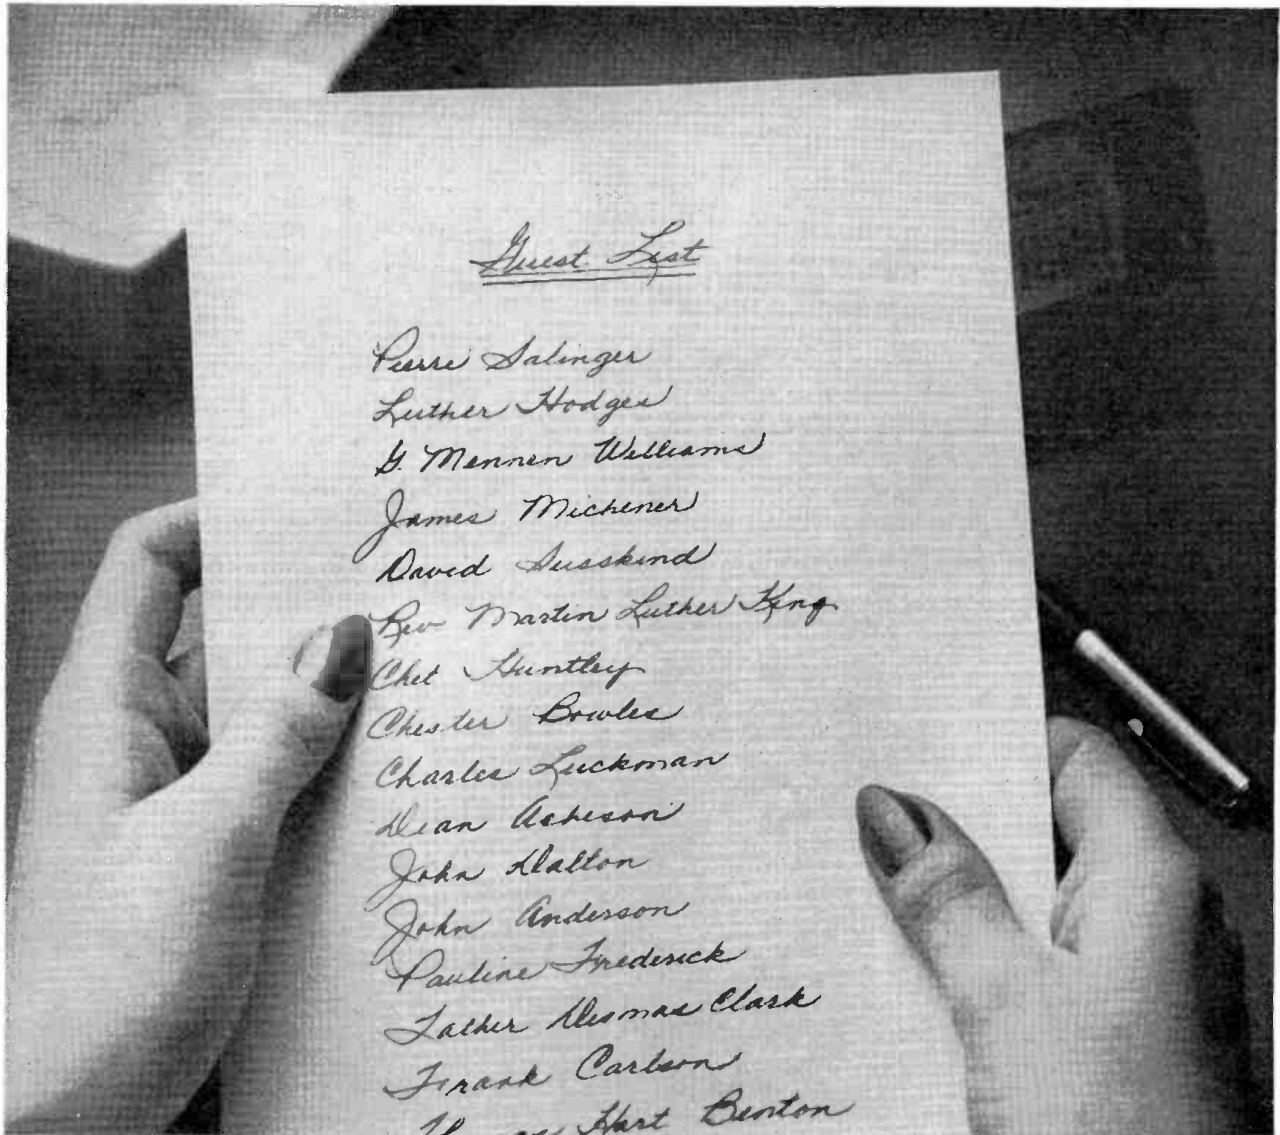 Guest List
Pierre Salinger
Luther Hodges
G. Mennen Williams
James Michener
David Susskind
Rev Martin Luther King
Chet Huntley
Chester Bowles
Charles Luckman
Dean Acheson
John Dalton
John Anderson
Pauline Frederick
Father Dismas Clark
Frank Carlson
Thomas Hart Benton